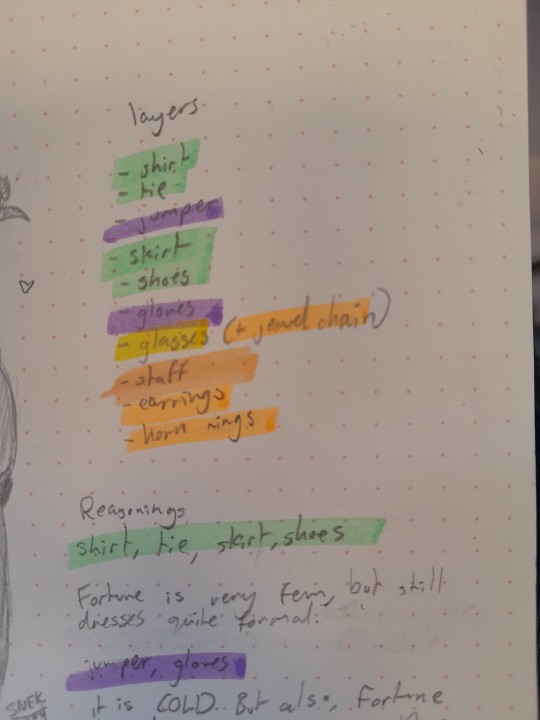 layers
- shirt
- tie
- jumper
- skirt
- shoes
- gloves
- glasses (+ jewel chain)
- staff
- earrings
- horn rings
Reasonings
shirt, tie, skirt, shoes
Fortune is very fem, but still
dresses quite formal.
jumper, gloves
it is COLD.. But also, Fortune
SNEK